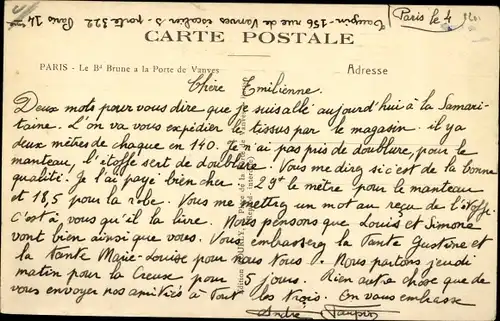 Paris le 4
156 rue de Vanves escalier 3 porte 322 Paris 14
CARTE POSTALE
PARIS - Le Bd Brune a la Porte de Vanves
Adresse
Chère Emilienne.
Deux mots pour vous dire que je suis allé aujourd'hui à la Samari-
taine. L'on va vous expédier le tissus par le magasin. il y a
deux mètres de chaque en 140. Je n'ai pas pris de doublure, pour le
manteau, l'étoffe sert de doublure. Vous me direz si c'est de la bonne
qualité. Je l'ai payé bien cher 29 le mètre pour le manteau
et 18,5 pour la robe. Vous me mettrez un mot au reçu de l'étoffe
C'est à vous qu'il la livre. Nous pensons que Louis et Simone
vont bien ainsi que vous. Vous embrasserez la Tante Gustine et
la Tante Marie-Louise pour nous. Nous partons jeudi
matin pour la Creuse pour 5 jours. Rien autre chose que de
vous envoyer nos amitiés à Tout les trois. On vous embrasse
André